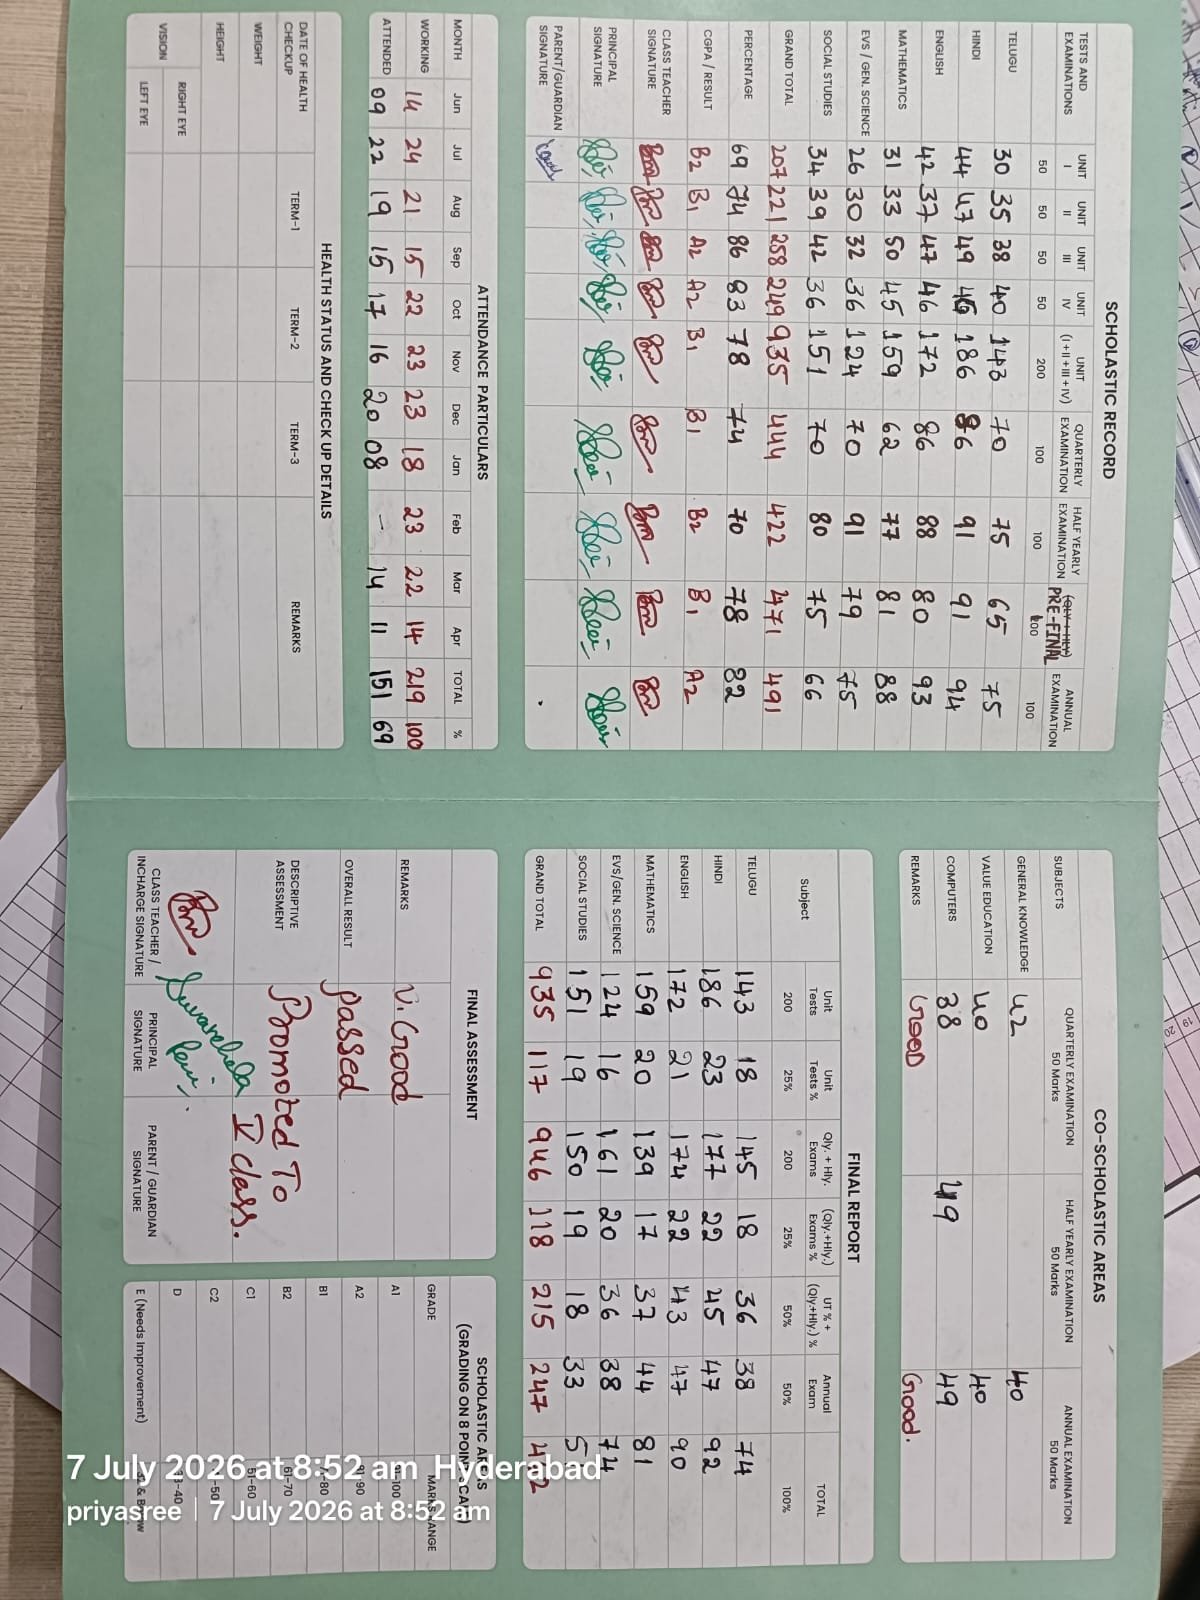 SCHOLASTIC RECORD
TESTS AND EXAMINATIONS UNIT I UNIT II UNIT III UNIT IV UNIT (I+II+III+IV) QUARTERLY EXAMINATION HALF YEARLY EXAMINATION PRE-FINAL ANNUAL EXAMINATION
50 50 50 50 200 100 100 100 100
TELUGU 30 35 38 40 143 70 75 65 75
HINDI 44 47 49 46 186 86 91 91 94
ENGLISH 42 37 47 46 172 86 88 80 93
MATHEMATICS 31 33 50 45 159 62 77 81 88
EVS / GEN. SCIENCE 26 30 32 36 124 70 91 79 75
SOCIAL STUDIES 34 39 42 36 151 70 80 75 66
GRAND TOTAL 207 221 258 249 935 444 422 471 491
PERCENTAGE 69 74 86 83 78 74 70 78 82
CGPA / RESULT B2 B1 A2 A2 B1 B1 B2 B1 A2
CLASS TEACHER SIGNATURE
PRINCIPAL SIGNATURE
PARENT/GUARDIAN SIGNATURE
ATTENDANCE PARTICULARS
MONTH Jun Jul Aug Sep Oct Nov Dec Jan Feb Mar Apr TOTAL %
WORKING 14 24 21 15 22 23 23 18 23 22 14 219 100
ATTENDED 09 22 19 15 17 16 20 08 - 14 11 151 69
HEALTH STATUS AND CHECK UP DETAILS
DATE OF HEALTH CHECKUP TERM-1 TERM-2 TERM-3 REMARKS
WEIGHT
HEIGHT
VISION RIGHT EYE
LEFT EYE
CO-SCHOLASTIC AREAS
SUBJECTS QUARTERLY EXAMINATION 50 Marks HALF YEARLY EXAMINATION 50 Marks ANNUAL EXAMINATION 50 Marks
GENERAL KNOWLEDGE 42 40
VALUE EDUCATION 40 40
COMPUTERS 38 49 49
REMARKS GOOD Good.
FINAL REPORT
Subject Unit Tests Unit Tests % Qly. + Hly. Exams (Qly.+Hly.) Exams % UT % + (Qly.+Hly.) % Annual Exam TOTAL
200 25% 200 25% 50% 50% 100%
TELUGU 143 18 145 18 36 38 74
HINDI 186 23 177 22 45 47 92
ENGLISH 172 21 174 22 43 47 90
MATHEMATICS 159 20 139 17 37 44 81
EVS/GEN. SCIENCE 124 16 161 20 36 38 74
SOCIAL STUDIES 151 19 150 19 18 33
GRAND TOTAL 935 117 946 118 215 247
FINAL ASSESSMENT
REMARKS V. Good
OVERALL RESULT Passed
DESCRIPTIVE ASSESSMENT Promoted To
V class.
CLASS TEACHER / INCHARGE SIGNATURE PRINCIPAL SIGNATURE PARENT / GUARDIAN SIGNATURE
SCHOLASTIC AREAS
(GRADING ON 8 POINT SCALE)
GRADE MARKS RANGE
A1 91-100
A2 81-90
B1 71-80
B2 61-70
C1 51-60
C2 41-50
D 33-40
E (Needs Improvement)
7 July 2026 at 8:52 am Hyderabad
priyasree | 7 July 2026 at 8:52 am